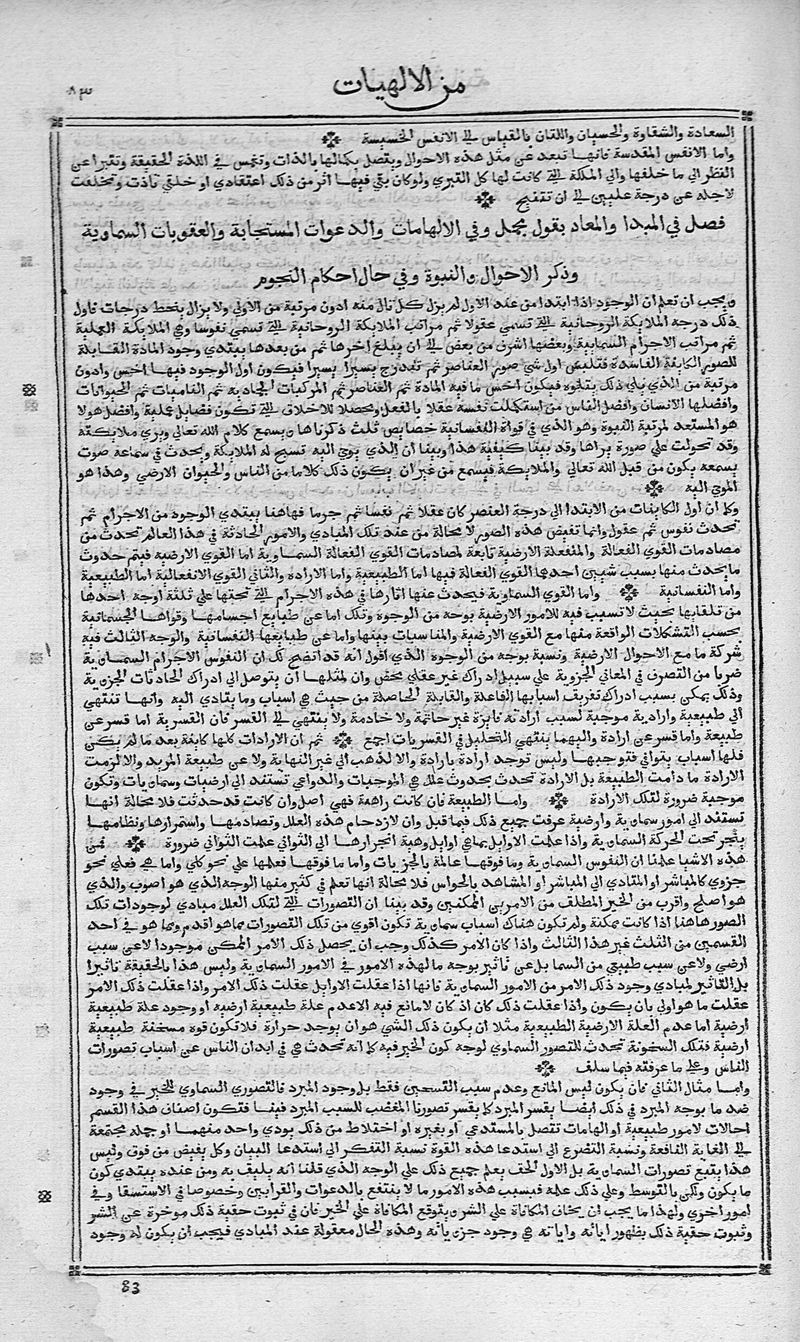 من الالهيات
٨٣
السعادة والشقاوة والحسبان واللذان بالقياس الى الانفس الخسيسة
واما الانفس المقدسة فانها تبعد عن مثل هذه الاحوال ويتصل بكمالها بالذات وتنغمس فى اللذة الحقيقة وتتبرا عن
النظر الى ما خلفها والى المملكة التى كانت لها كل التبرى ولو كان بقى فيها اثر من ذلك اعتقادى او خلقى تاذت وتخلفت
لاجله عن درجة عليين الى ان تنفسخ
فصل في المبدا والمعاد بقول مجمل وفي الالهامات والدعوات المستجابة والعقوبات السماوية
وذكر الاحوال والنبوة وفي حال احكام النجوم
ويجب ان تعلم ان الوجود اذا ابتدا من عند الاول لم يزل كل تال منه ادون مرتبة من الاول ولا يزال ينحط درجات فاول
ذلك درجه الملايكة الروحانية التى تسمى عقولا ثم مراتب الملايكة الروحانية التى تسمى نفوسا وهى الملايكة العملية
ثم مراتب الاجرام السمايية وبعضها اشرف من بعض الى ان يبلغ اخرها ثم من بعدها يبتدى وجود المادة القابلة
للصور الكاينة الفاسدة فتلبس اول شى صور العناصر ثم تتدرج يسيرا يسيرا فيكون اول الوجود فيها اخس وادون
مرتبة من الذى يلى ذلك يتلوه فيكون اخس ما فيه المادة ثم العناصر ثم المركبات الجماديه ثم الناميات ثم الحيوانات
وافضلها الانسان وافضل الناس من استكملت نفسه عقلا بالفعل ومحصلا للاخلاق التى تكون فضايل عملية وافضل هولا
هو المستعد لمرتبة النبوة وهو الذى فى قواه النفسانية خصايص ثلث ذكرناها ويسمع كلام الله تعالى ويرى ملايكته
وقد تحولت على صورة يراها وقد بينا كيفية هذا وبينا ان الذى يوحى اليه تسبح له الملايكة ويحدث فى سماعه صوت
يسمعه يكون من قبل الله تعالى والملايكة فيسمع من غير ان يكون ذلك كلاما من الناس والحيوان الارضى وهذا هو
الموحى اليه
وكما ان اول الكاينات من الابتدا الى درجة العنصر كان عقلا ثم نفسا ثم جرما فهاهنا يبتدى الوجود من الاجرام ثم
تحدث نفوس ثم عقول وانما تفيض هذه الصور لا محالة من عند تلك المبادى والامور الحادثة فى هذا العالم تحدث من
مصادمات القوى الفعالة والمنفعلة الارضية تابعة لمصادمات القوى الفعالة السماوية اما القوى الارضية فيتم حدوث
ما يحدث منها بسبب شيين احدهما القوى الفعالة فيها اما الطبيعية واما الاراده والثانى القوى الانفعالية اما الطبيعية
واما النفسانية واما القوى السماوية فيحدث عنها اثارها فى هذه الاجرام التى تحتها على ثلثة اوجه احدها
من تلقايها بحيث لا تسبب فيه للامور الارضية بوجه من الوجوه وتلك اما عن طبايع اجسامها وقواها الجسمانية
بحسب التشكلات الواقعة منها مع القوى الارضية والمناسبات بينها واما عن طبايعها النفسانية والوجه الثالث فيه
شركة ما مع الاحوال الارضية ونسبة بوجه من الوجوه الذى اقول انه قد اتضح لك ان النفوس الاجرام السماوية
ضربا من التصرف فى المعانى الجزوية على سبيل ادراك غير عقلى محض وان لمثلها ان يتوصل الى ادراك الحادثات الجزوية
وذلك يمكن بسبب ادراك تفاريق اسبابها الفاعلة والقابلة الحاصلة من حيث هى اسباب وما يتادى اليه وانها تنتهى
الى طبيعية وارادية موجبة ليسب ارادته فاترة غير حاتمة ولا خادمة ولا ينتهى الى القسر فان القسرية اما قسر عن
طبيعة واما قسر عن ارادة واليهما ينتهى التحليل فى القسريات اجمع ثم ان الارادات كلها كاينة بعد ما لم يكن
فلها اسباب يتوافى فتوجبها وليس توجد ارادة بارادة والا لذهب الى غير النهاية ولا عن طبيعة المريد والا لزمت
الارادة ما دامت الطبيعة بل الارادة تحدث بحدوث علل هى الموجبات والدواعى تستند الى ارضيات وسماويات وتكون
موجبة ضرورة لتلك الارادة واما الطبيعة فان كانت راهنة فهى اصل وان كانت قد حدثت فلا محالة انها
تستند الى امور سماوية وارضية عرفت جميع ذلك فيما قبل وان لازدحام هذه العلل وتصادمها واستمرارها ونظامها
ينجر تحت الحركة السماوية واذا علمت الاوايل بما هى اوايل وهية انجرارها الى الثوانى علمت الثوانى ضرورة فمن
هذه الاشيا علمنا ان النفوس السماوية وما فوقها عالمة بالجزيات واما ما فوقها فعلمها على نحو كلى واما هى فعلى نحو
جزوى كالمباشر او المتادى الى المباشر او المشاهد بالحواس فلا محالة انها تعلم فى كثير منها الوجه الذى هو اصوب والذى
هو اصلح واقرب من الخير المطلق من الامرين الممكنين وقد بينا ان التصورات التى لتلك العلل مبادى لوجودات تلك
الصور هاهنا اذا كانت ممكنة ولم تكون هناك اسباب سماوية تكون اقوى من تلك التصورات مما هو اقدم ومما هو فى احد
القسمين من الثلث غير هذا الثالث واذا كان الامر كذلك وجب ان يحصل ذلك الامر الممكن موجودا لا عن سبب
ارضى ولا عن سبب طبيعى من السما بل عن تاثير بوجه ما لهذه الامور فى الامور السماوية وليس هذا بالحقيقة تاثيرا
بل التاثير لمبادى وجود ذلك الامر من الامور السماوية فانها اذا عقلت الاوايل عقلت ذلك الامر واذا عقلت ذلك الامر
عقلت ما هو اولى بان يكون واذا عقلت ذلك كان اذ كان لا مانع فيه الا عدم علة طبيعية ارضيه او وجود علة طبيعية
ارضية اما عدم العلة الارضية الطبيعية مثلا ان يكون ذلك الشى هو ان يوجد حرارة فلا تكون قوه مسخنة طبيعية
ارضية فتلك السخونة تحدث للتصور السماوى لوجه كون الخير فيه كما انه تحدث هى فى ابدان الناس عن اسباب تصورات
الناس وعلى ما عرفته فيما سلف
واما مثال الثانى فان يكون ليس المانع وعدم سبب التسخين فقط بل وجود المبرد فالتصورى السماوى للخير فى وجود
ضد ما يوجه المبرد فى ذلك ايضا يقسر المبرد كما يقسر تصورنا المغضب للسبب المبرد فينا فتكون اصناف هذا القسم
احالات لامور طبيعية او الهامات تتصل بالمستدعى او بغيره او اختلاط من ذلك يودى واحد منهما او جمله مجتمعة
الى الغاية النافعة ونسبة التضرع الى استدعا هذه القوة نسبة التفكر الى استدعا البيان وكل يفيض من فوق وليس
هذا يتبع تصورات السماوية بل الاول الحق يعلم جميع ذلك على الوجه الذى قلنا انه يليق به ومن عنده يبتدى كون
ما يكون ولكن بالتوسط وعلى ذلك علمه فبسبب هذه الامور ما لا ينتفع بالدعوات والقرابين وخصوصا فى الاستسقا وفى
امور اخرى ولهذا ما يجب ان يخاف المكافاة على الشر ويتوقع المكافاة على الخير فان فى ثبوت حقية ذلك مزجرة عن الشر
وثبوت حقية ذلك بظهور اياته واياته هى وجود جزوياته وهذه الحال معقولة عند المبادى فيجب ان يكون له وجود
83